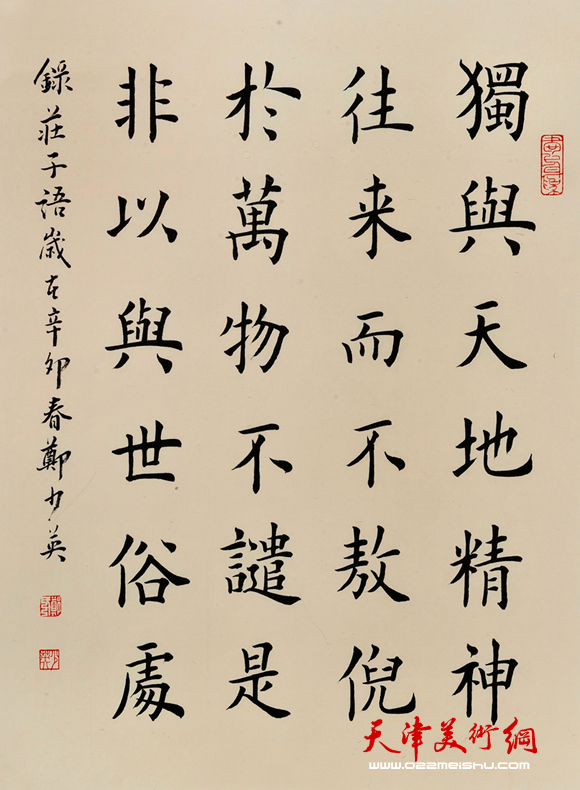 獨與天地精神
往来而不敖倪
於萬物不譴是
非以與世俗處
錄莊子語歲在辛卯春鄭少英
天津美術網
www.022meishu.com